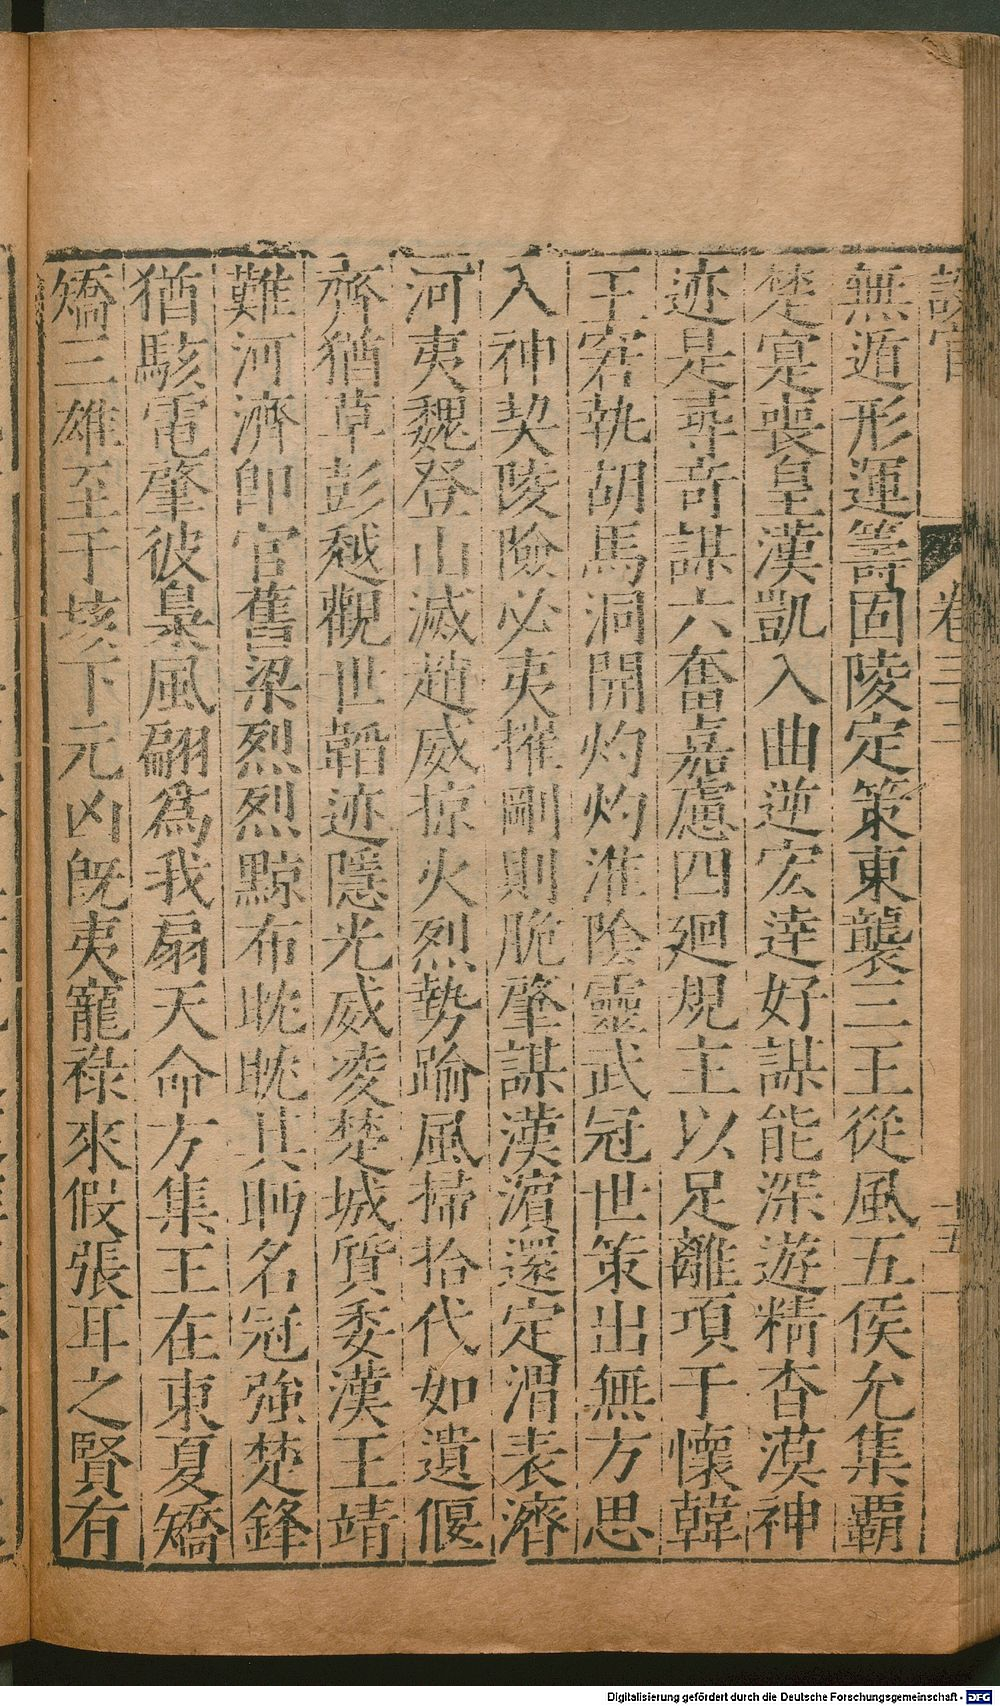 卷三三
十五
無遁形運籌固陵定策東襲三王從風五侯允集霸
楚寔喪皇漢凱入曲逆宏逹好謀能深遊精杳漠神
迹是尋奇謀六奮嘉慮四廻規主以足離項于懷韓
王窘執胡馬洞開灼灼淮陰靈武冠世策出無方思
入神契陵險必夷摧剛則脆肇謀漢濵還定渭表濟
河夷魏登山滅趙威掠火烈勢踰風掃拾代如遺偃
齊猶草彭越觀世韜迹隱光威夌楚城質委漢王靖
難河濟卽官舊梁烈烈黥布眈眈其眄名冠強楚鋒
猶駭電肇彼梟風翻爲我扇天命方集王在東夏矯
矯三雄至于垓下元凶旣夷寵祿來假張耳之賢有
Digitalisierung gefördert durch die Deutsche Forschungsgemeinschaft - DFG